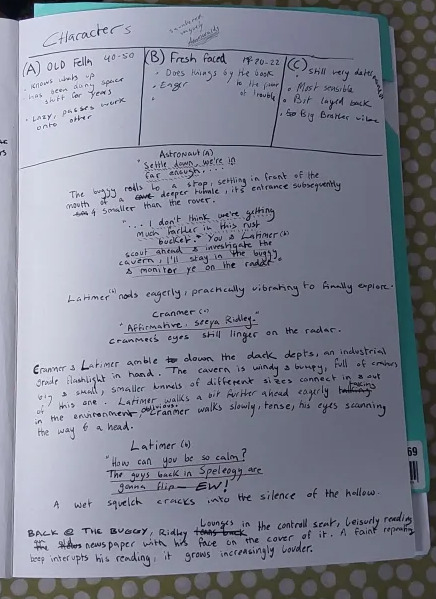 Characters
(A) OLD Fella 40-50
• Knows whats up
has been doing space
stuff for years
• Lazy, passes work
onto other
(B) Fresh faced 19-20-22
• Does things by the book
to the point
of trouble
• Eager
(C)
• Still very determined
• Most sensible
• Bit layed back
• Big Brother vibe
Astronaut (A)
"Settle down, we're in
far enough....
The buggy rolls to a stop, settling in front of the
mouth of a deeper tunnel, its entrance subsequently
smaller than the rover.
"... I don't think we're getting
much farther in this rust
bucket. You & Latimer (b)
scout ahead & investigate the
cavern, I'll stay in the buggy
& monitor ye on the radar"
Latimer (b) nods eagerly, practically vibrating to finally explore.
Cranmer (c)
"Affirmative, seeya Ridley."
Cranmer's eyes still linger on the radar.
Cranmer & Latimer amble down the dark depts, an industrial
grade flashlight in hand. The cavern is windy & bumpy, full of
big & small, smaller tunnels of different sizes connect in & out
of this one. Latimer walks a bit further ahead eagerly taking
in the environment, oblivious. Cranmer walks slowly, tense, his eyes scanning
the way ahead.
Latimer (b)
"How can you be so calm?
The guys back in Speleogy are
gonna flip— EW!
A wet squelch cracks into the silence of the hollow.
BACK @ THE BUGGY, Ridley Lounges in the controll seat, leisurly reading
newspaper with his face on the cover of it. A faint repeating
beep interupts his reading, it grows increasingly louder.
69